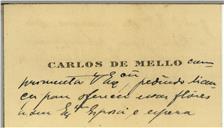 CARLOS DE MELLO cum
primenta V. Ex.ª pedindo licen
ça para oferecer umas flores
a sua Ex.ma Esposa e espera